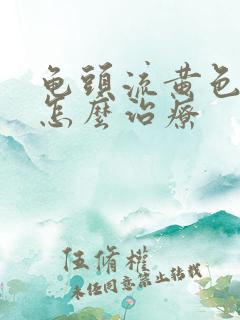 龟头流黄色
怎麼治療
伍脩權
未经同意禁止转载